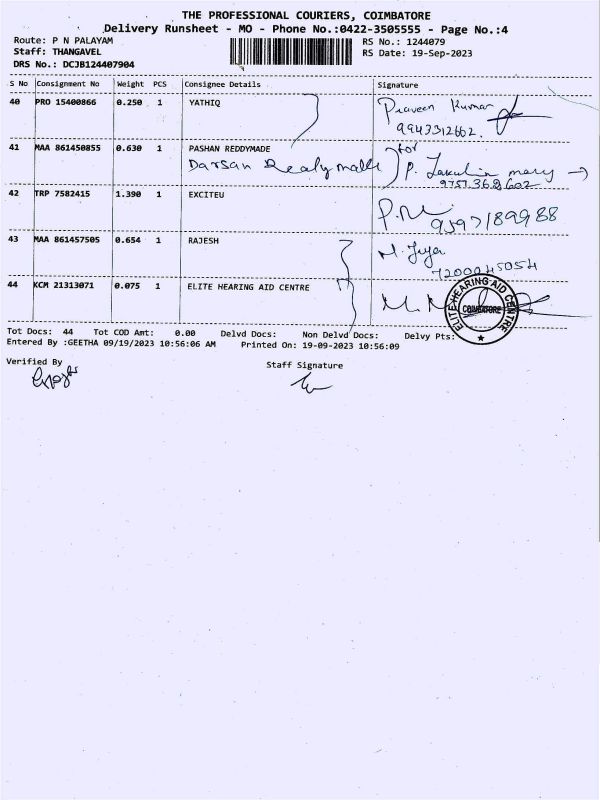 THE PROFESSIONAL COURIERS, COIMBATORE
Delivery Runsheet - MO - Phone No.:0422-3505555 - Page No.:4
Route: P N PALAYAM
RS No.: 1244079
Staff: THANGAVEL
RS Date: 19-Sep-2023
DRS No.: DCJB124407904
S No Consignment No Weight PCS Consignee Details Signature
40 PRO 15400866 0.250 1 YATHIQ Praveen Kumar
9943312662.
41 MAA 861450855 0.630 1 PASHAN REDDYMADE for
Darsan P. mary
9757368602
42 TRP 7582415 1.390 1 EXCITEU
9597189988
43 MAA 861457505 0.654 1 RAJESH
7200045054
44 KCM 21313071 0.075 1 ELITE HEARING AID CENTRE
ELITE HEARING AID CENTRE
COIMBATORE
Tot Docs: 44 Tot COD Amt: 0.00 Delvd Docs: Non Delvd Docs: Delvy Pts:
Entered By :GEETHA 09/19/2023 10:56:06 AM Printed On: 19-09-2023 10:56:09
Verified By
Staff Signature